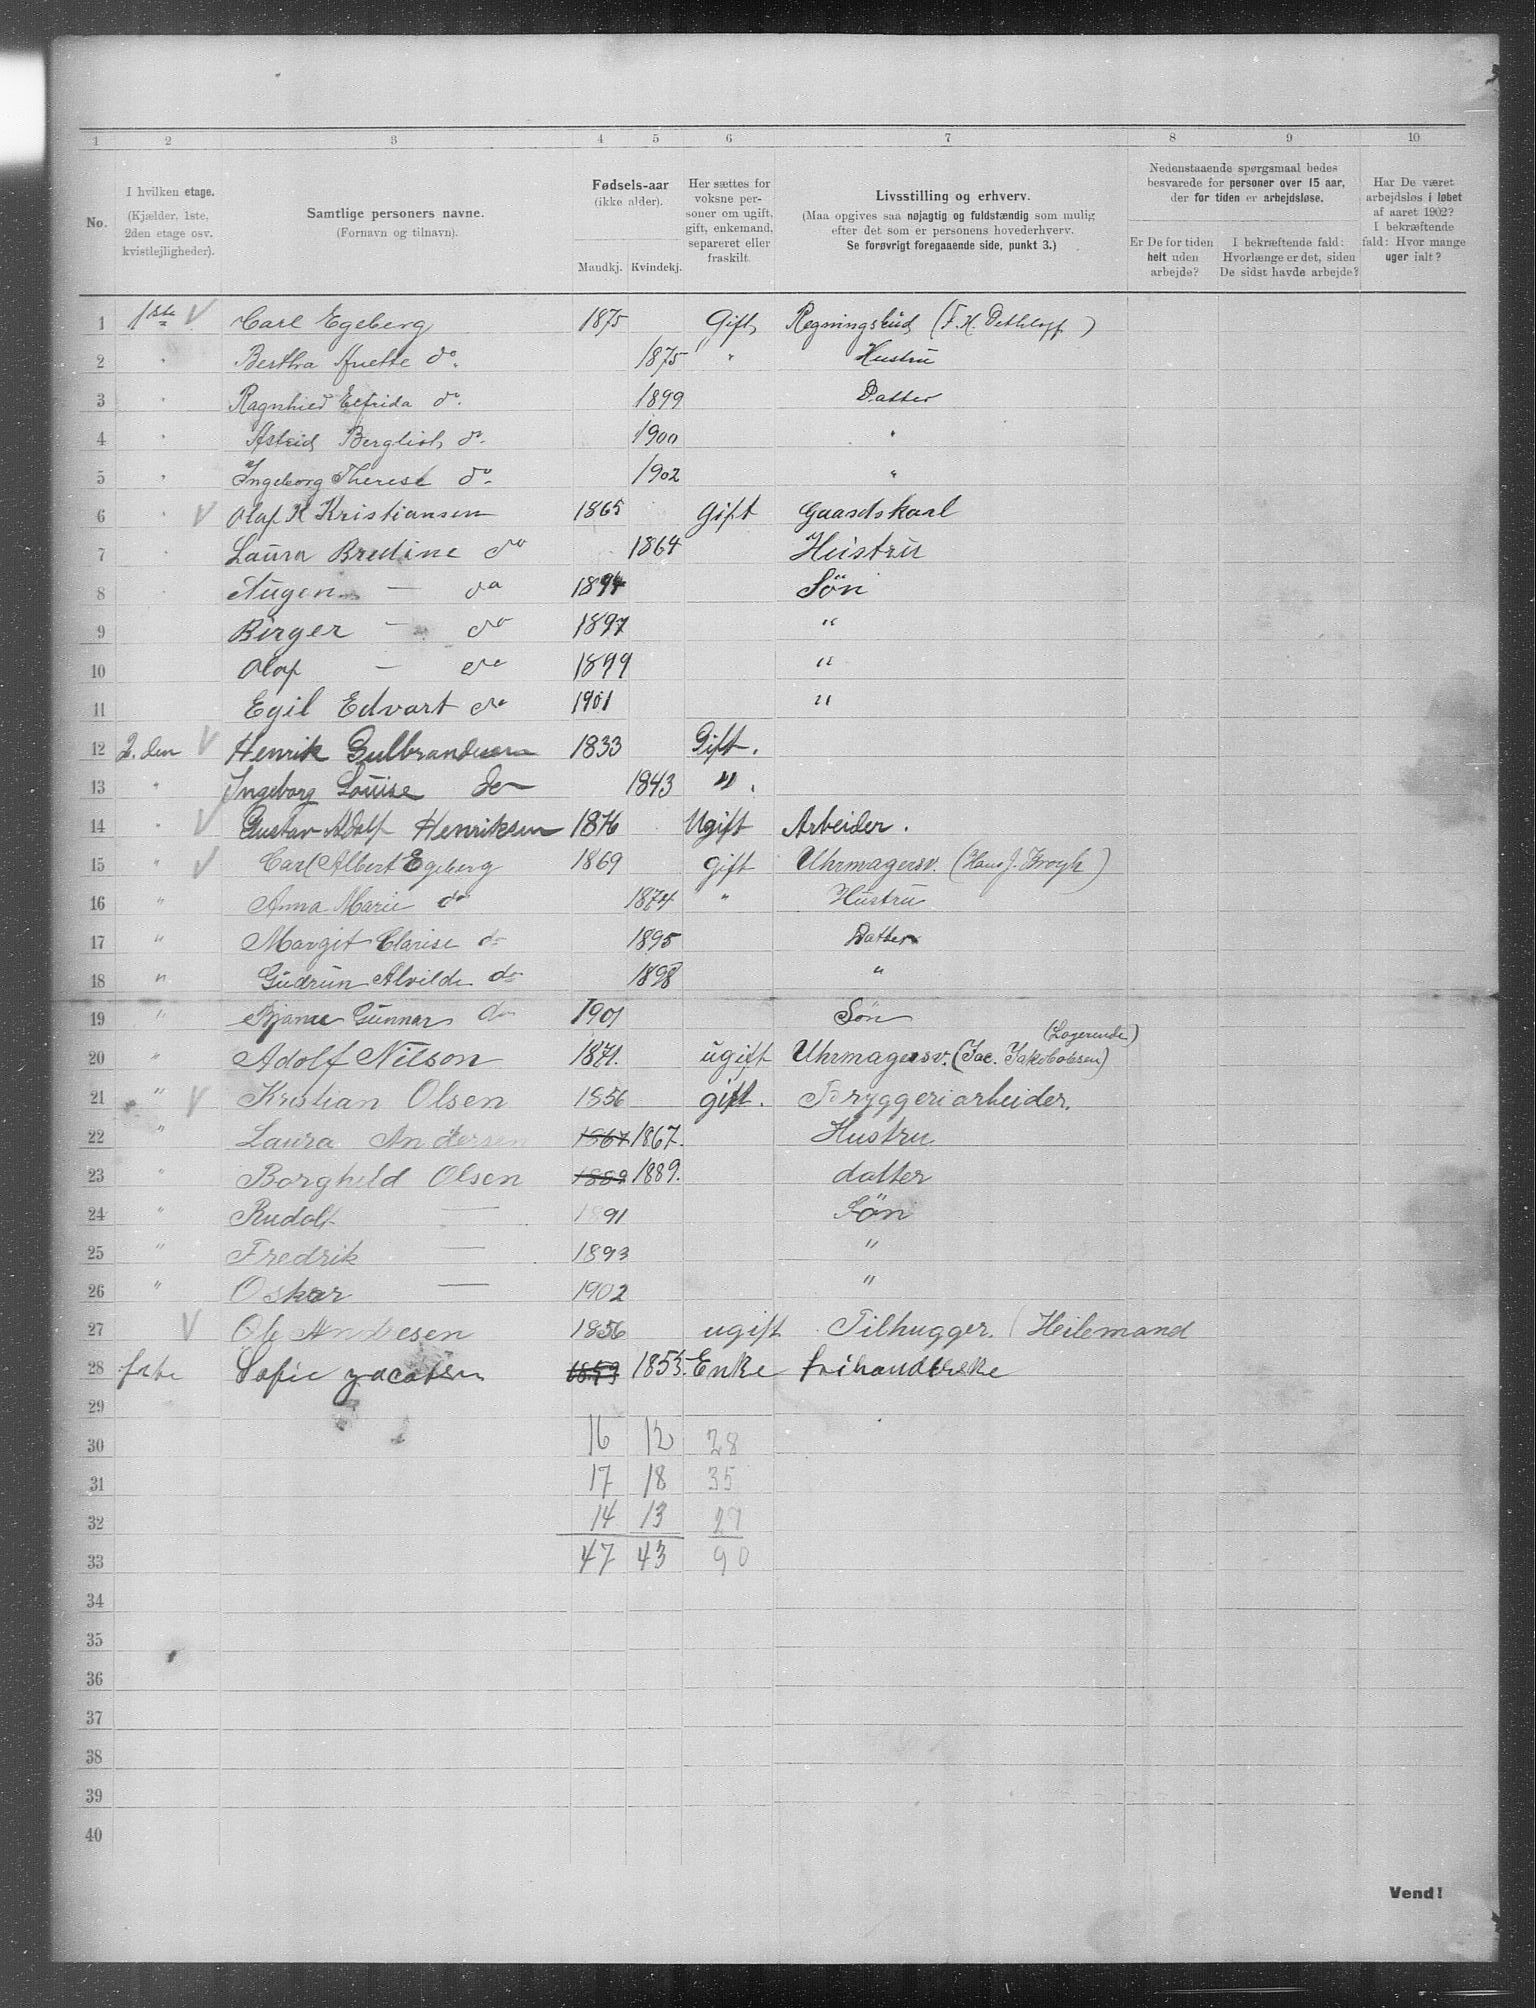 1 2 3 4 5 6 7 8 9 10
No.
I hvilken etage.
(Kjælder, 1ste,
2den etage osv.
kvistlejligheder).
Samtlige personers navne.
(Fornavn og tilnavn).
Fødsels-aar
(ikke alder).
Mandkj. Kvindekj.
Her sættes for
voksne per-
soner om ugift,
gift, enkemand,
separeret eller
fraskilt.
Livsstilling og erhverv.
(Maa opgives saa nøjagtig og fuldstændig som mulig
efter det som er personens hovederhverv.
Se forøvrigt foregaaende side, punkt 3.)
Nedenstaaende spørgsmaal bedes
besvarede for personer over 15 aar,
der for tiden er arbejdsløse.
Er De for tiden
helt uden
arbejde?
I bekræftende fald:
Hvorlænge er det, siden
De sidst havde arbejde?
Har De været
arbejdsløs i løbet
af aaret 1902?
I bekræftende
fald: Hvor mange
uger ialt?
1 1ste Carl Egeberg 1875 Gift Regningsbud (F. H. Dethloff)
2 " Bertha Anette do. 1875 " Hustru
3 " Ragnhild Elfrida do. 1899 Datter
4 " Astrid Bergliot do. 1900 "
5 " Ingeborg Therese do. 1902 "
6 " Olaf K Kristiansen 1865 Gift Gaardskarl
7 " Laura Bredine do 1864 Hustru
8 " Augen — do 1894 Søn
9 Birger — do 1897 "
10 Olaf — do 1899 "
11 Egil Edvart do 1901 "
12 2.den Henrik Gulbrandsen 1833 Gift.
13 " Ingeborg Louise do 1843 " .
14 " Gustav Adolf Henriksen 1876 Ugift Arbeider.
15 " Carl Albert Egeberg 1869 gift Uhrmagersv. (Hans J. Krogh)
16 " Anna Marie do 1874 " Hustru
17 " Margit Clarise do 1895 Datter
18 " Gudrun Alvilde do 1898 "
19 " Bjarne Gunnar do 1901 Søn
(Logerende)
20 " Adolf Nilson 1871. ugift Uhrmagersv. (Jac. Jakobsen)
21 " Kristian Olsen 1856 gift. Bryggeriarbeider.
22 " Laura Andersen 1867 1867. Hustru
23 " Borghild Olsen 1889 1889. datter
24 " Rudolf — 1891 Søn
25 " Fredrik — 1893 "
26 " Oskar — 1902 "
27 Ole Andresen 1856 ugift Tilhugger. (Heilemand
28 Sofie Jacobsen 1853 1853. Enke
29
30 16 12 28
31 17 18 35
32 14 13 27
33 47 43 90
34
35
36
37
38
39
40
Vend!